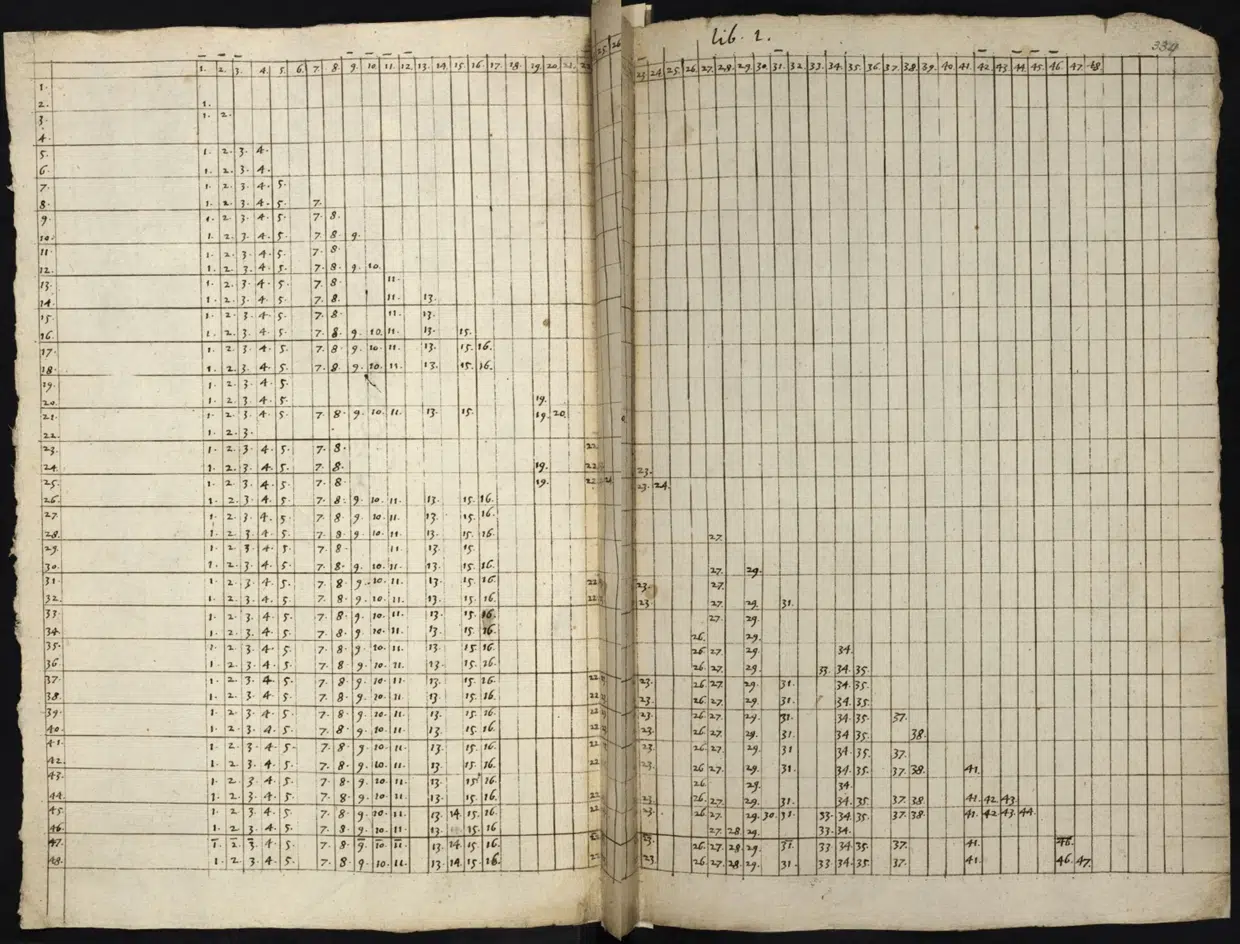 lib. 1.
334
1. 2. 3. 4. 5. 6. 7. 8. 9. 10. 11. 12. 13. 14. 15. 16. 17. 18. 19. 20. 21. 22 23. 24. 25. 26. 27. 28. 29. 30. 31. 32. 33. 34. 35. 36. 37. 38. 39. 40. 41. 42. 43. 44. 45. 46. 47. 48.
1.
2. 1.
3. 1. 2.
4.
5. 1. 2. 3. 4.
6. 1. 2. 3. 4.
7. 1. 2. 3. 4. 5.
8. 1. 2. 3. 4. 5. 7.
9. 1. 2. 3. 4. 5. 7. 8.
10. 1. 2. 3. 4. 5. 7. 8. 9.
11. 1. 2. 3. 4. 5. 7. 8.
12. 1. 2. 3. 4. 5. 7. 8. 9. 10.
13. 1. 2. 3. 4. 5. 7. 8. 11.
14. 1. 2. 3. 4. 5. 7. 8. 11. 13.
15. 1. 2. 3. 4. 5. 7. 8. 11. 13.
16. 1. 2. 3. 4. 5. 7. 8. 9. 10. 11. 13. 15.
17. 1. 2. 3. 4. 5. 7. 8. 9. 10. 11. 13. 15. 16.
18. 1. 2. 3. 4. 5. 7. 8. 9. 10. 11. 13. 15. 16.
19. 1. 2. 3. 4. 5.
20. 1. 2. 3. 4. 5. 19.
21. 1. 2. 3. 4. 5. 7. 8. 9. 10. 11. 13. 15. 19. 20.
22. 1. 2. 3.
23. 1. 2. 3. 4. 5. 7. 8. 22.
24. 1. 2. 3. 4. 5. 7. 8. 19. 22. 23.
25. 1. 2. 3. 4. 5. 7. 8. 19. 22. 23. 24.
26. 1. 2. 3. 4. 5. 7. 8. 9. 10. 11. 13. 15. 16.
27. 1. 2. 3. 4. 5. 7. 8. 9. 10. 11. 13. 15. 16.
28. 1. 2. 3. 4. 5. 7. 8. 9. 10. 11. 13. 15. 16. 27.
29. 1. 2. 3. 4. 5. 7. 8. 11. 13. 15.
30. 1. 2. 3. 4. 5. 7. 8. 9. 10. 11. 13. 15. 16. 27. 29.
31. 1. 2. 3. 4. 5. 7. 8. 9. 10. 11. 13. 15. 16. 22. 23. 27.
32. 1. 2. 3. 4. 5. 7. 8. 9. 10. 11. 13. 15. 16. 22. 23. 27. 29. 31.
33. 1. 2. 3. 4. 5. 7. 8. 9. 10. 11. 13. 15. 16. 27. 29.
34. 1. 2. 3. 4. 5. 7. 8. 9. 10. 11. 13. 15. 16. 26. 29.
35. 1. 2. 3. 4. 5. 7. 8. 9. 10. 11. 13. 15. 16. 26. 27. 29. 34.
36. 1. 2. 3. 4. 5. 7. 8. 9. 10. 11. 13. 15. 16. 26. 27. 29. 33. 34. 35.
37. 1. 2. 3. 4. 5. 7. 8. 9. 10. 11. 13. 15. 16. 22. 23. 26. 27. 29. 31. 34. 35.
38. 1. 2. 3. 4. 5. 7. 8. 9. 10. 11. 13. 15. 16. 22. 23. 26. 27. 29. 31. 34. 35.
39. 1. 2. 3. 4. 5. 7. 8. 9. 10. 11. 13. 15. 16. 22. 23. 26. 27. 29. 31. 34. 35. 37.
40. 1. 2. 3. 4. 5. 7. 8. 9. 10. 11. 13. 15. 16. 22. 23. 26. 27. 29. 31. 34. 35. 38.
41. 1. 2. 3. 4. 5. 7. 8. 9. 10. 11. 13. 15. 16. 22. 23. 26. 27. 29. 31 34. 35. 37.
42. 1. 2. 3. 4. 5. 7. 8. 9. 10. 11. 13. 15. 16. 22. 23. 26. 27. 29. 31. 34. 35. 37. 38. 41.
43. 1. 2. 3. 4. 5. 7. 8. 9. 10. 11. 13. 15. 16. 26. 29. 34.
44. 1. 2. 3. 4. 5. 7. 8. 9. 10. 11. 13. 15. 16. 22. 23. 26. 27. 29. 31. 34. 35. 37. 38. 41. 42. 43.
45. 1. 2. 3. 4. 5. 7. 8. 9. 10. 11. 13. 14. 15. 16. 22. 23. 26. 27. 29. 30. 31. 33. 34. 35. 37. 38. 41. 42. 43. 44.
46. 1. 2. 3. 4. 5. 7. 8. 9. 10. 11. 13. 15. 16 27. 28. 29. 33. 34.
47. 1. 2. 3. 4. 5. 7. 8. 9. 10. 11. 13. 14. 15. 16. 22. 23. 26. 27. 28. 29. 31. 33. 34. 35. 37. 41. 46.
48. 1. 2. 3. 4. 5. 7. 8. 9. 10. 11. 13. 14. 15. 16. 22. 23. 26. 27. 28. 29. 31. 33. 34. 35. 37. 41. 46. 47.